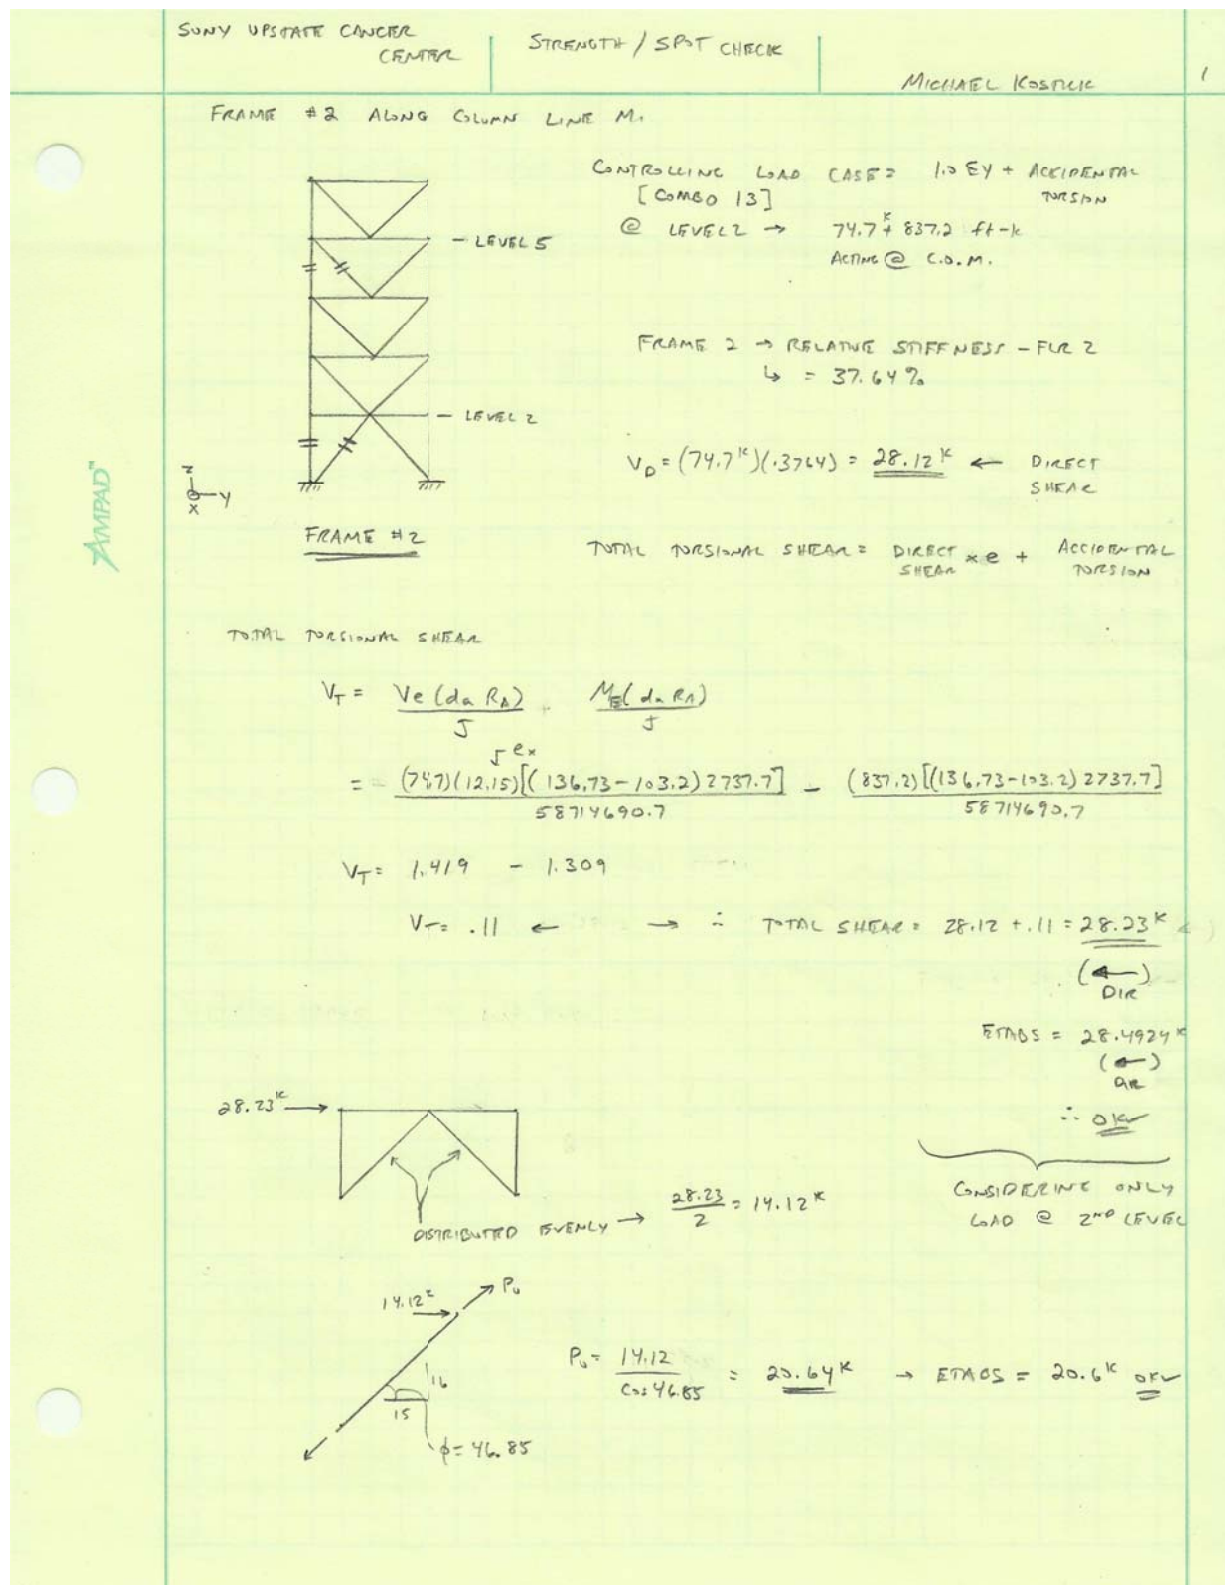 SUNY UPSTATE CANCER
CENTER
STRENGTH / SPOT CHECK
MICHAEL KOSTICK
1
FRAME #2 ALONG COLUMN LINE M.
CONTROLLING LOAD CASE = 1.0 EY + ACCIDENTAL
TORSION
[COMBO 13]
@ LEVEL 2 → 74.7ᵏ + 837.2 ft-k
ACTING @ C.O.M.
- LEVEL 5
FRAME 2 → RELATIVE STIFFNESS - FLR 2
↳ = 37.64 %
- LEVEL 2
V_D = (74.7ᵏ)(.3764) = 28.12ᵏ ← DIRECT
SHEAR
Z
Y
X
AMPAD™
FRAME #2
TOTAL TORSIONAL SHEAR = DIRECT SHEAR × e + ACCIDENTAL TORSION
TOTAL TORSIONAL SHEAR
V_T = Ve(da R_A) / J M_E(da R_A) / J
e_x
= (747)(12.15)[(136.73-103.2)2737.7] / 58714690.7 - (837.2)[(136.73-103.2)2737.7] / 58714690.7
V_T = 1.419 - 1.309
V_T = .11 ← → ∴ TOTAL SHEAR = 28.12 + .11 = 28.23ᵏ
(←)
DIR
ETABS = 28.4924ᵏ
(←)
DIR
∴ OK
28.23ᵏ →
CONSIDERING ONLY
LOAD @ 2ND LEVEL
DISTRIBUTED EVENLY → 28.23 / 2 = 14.12ᵏ
14.12ᵏ
Pu
Pu = 14.12 / cos 46.85 = 20.64ᵏ → ETABS = 20.6ᵏ OK
16
15
φ = 46.85